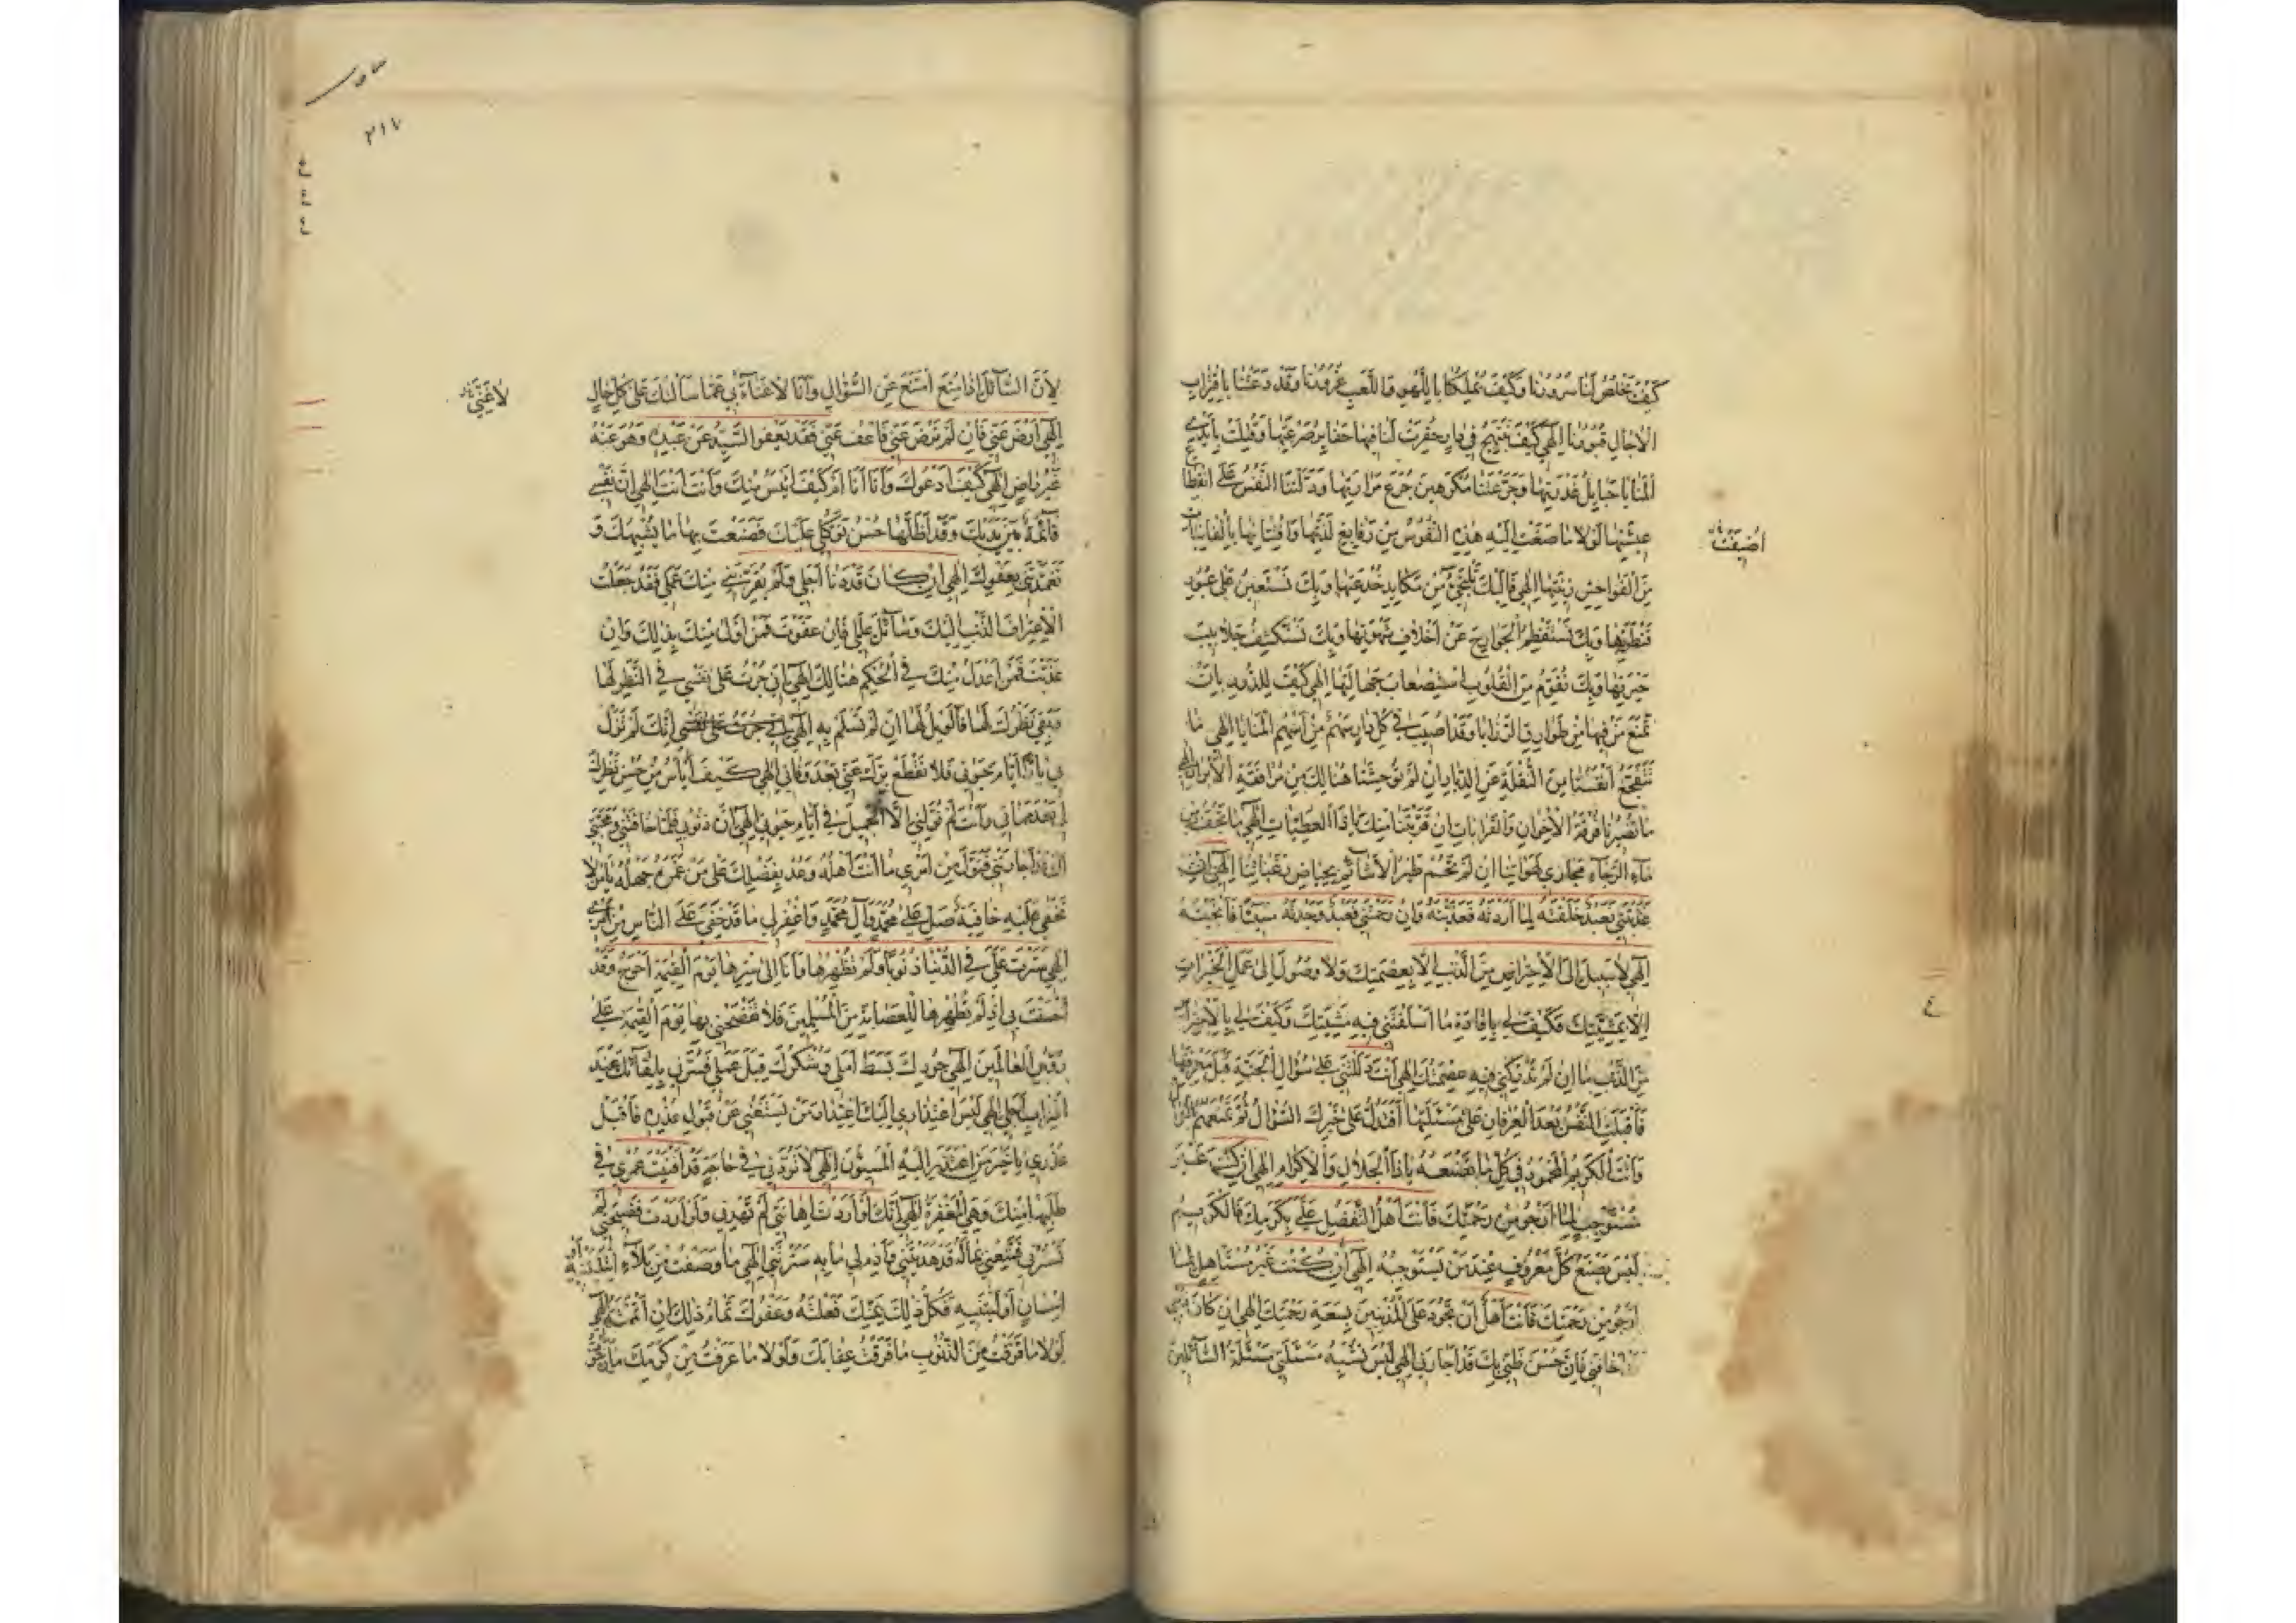 كَيْفَ يَخْلُصُ لَنَا سُرُورُنَا وَكَيْفَ يَمْلِكُنَا بِاللَّهْوِ وَاللَّعِبِ غُرُورُنَا وَقَدْ دَعَتْنَا بِاقْتِرَابِ
الْآجَالِ قُبُورُنَا إِلَهِي كَيْفَ نَبْتَهِجُ فِي دَارٍ حُفِرَتْ لَنَا فِيهَا حَفَايِرُ صَرْعَتِهَا وَفُتِلَتْ بِأَيْدِي
الْمَنَايَا حَبَايِلُ غَدْرَتِهَا وَجَرَّعَتْنَا مُكْرَهِينَ جُرَعَ مَرَارَتِهَا وَدَلَّتْنَا النَّفْسُ عَلَى انْقِطَاعِ
عِيشَتِهَا لَوْلَا مَا صَغَتْ إِلَيْهِ هَذِهِ النُّفُوسُ مِنْ رَفَايِغِ لَذَّتِهَا وَافْتِتَانِهَا بِالْفَانِيَاتِ
أُصِيغَتْ
مِنَ الْفَوَاحِشِ زِينَتِهَا إِلَهِي فَإِلَيْكَ نَلْتَجِئُ مِنْ مَكَايِدِ خُدْعَتِهَا وَبِكَ نَسْتَعِينُ عَلَى عُبُورِ
قَنْطَرَتِهَا وَبِكَ نَسْتَفْطِمُ الْجَوَارِحَ عَنْ أَخْلَافِ شَهْوَتِهَا وَبِكَ نَسْتَكْشِفُ جَلَابِيبَ
حَيْرَتِهَا وَبِكَ نُقَوِّمُ مِنَ الْقُلُوبِ اسْتِصْعَابَ جَهَالَتِهَا إِلَهِي كَيْفَ لِلدُّورِ بِأَنْ
تَمْنَعَ مَنْ فِيهَا مِنْ طَوَارِقِ الرَّزَايَا وَقَدْ أُصِيبَ فِي كُلِّ دَارٍ سَهْمٌ مِنْ أَسْهُمِ الْمَنَايَا إِلَهِي مَا
تَتَفَجَّعُ أَنْفُسُنَا مِنَ النُّقْلَةِ عَنِ الدِّيَارِ إِنْ لَمْ تُوحِشْنَا هُنَالِكَ مِنْ مُرَافَقَةِ الْأَبْرَارِ إِلَهِي
مَا تَضُرُّنَا فُرْقَةُ الْإِخْوَانِ وَالْقَرَابَاتِ إِنْ قَرَّبْتَنَا مِنْكَ يَا ذَا الْعَطِيَّاتِ إِلَهِي مَا تَجِفُّ مِنْ
مَاءِ الرَّجَاءِ مَجَارِي لَهَوَاتِنَا إِنْ لَمْ تَحُمْ طَيْرُ الْأَشَائِمِ بِحِيَاضِ رَغَبَاتِنَا إِلَهِي إِنْ
عَذَّبْتَنِي فَعَبْدٌ خَلَقْتَهُ لِمَا أَرَدْتَهُ فَعَذَّبْتَهُ وَإِنْ رَحِمْتَنِي فَعَبْدٌ وَجَدْتَهُ مُسِيئًا فَأَنْجَيْتَهُ
إِلَهِي لَا سَبِيلَ إِلَى الِاحْتِرَاسِ مِنَ الذَّنْبِ إِلَّا بِعِصْمَتِكَ وَلَا وُصُولَ إِلَى عَمَلِ الْخَيْرَاتِ
إِلَّا بِمَشِيَّتِكَ فَكَيْفَ لِي بِإِفَادَةِ مَا أَسْلَفْتَنِي فِيهِ مَشِيَّتُكَ وَكَيْفَ لِي بِالِاحْتِرَاسِ
مِنَ الذَّنْبِ مَا إِنْ لَمْ تُدْرِكْنِي فِيهِ عِصْمَتُكَ إِلَهِي أَنْتَ دَلَلْتَنِي عَلَى سُؤَالِ الْجَنَّةِ قَبْلَ مَعْرِفَتِهَا
فَأَقْبَلَتِ النَّفْسُ بَعْدَ الْعِرْفَانِ عَلَى مَسْئَلَتِهَا أَفَتَدُلُّ عَلَى خَيْرِكَ السُّؤَّالَ ثُمَّ تَمْنَعُهُمُ النَّوَالَ
وَأَنْتَ الْكَرِيمُ الْمَحْمُودُ فِي كُلِّ مَا تَصْنَعُهُ يَا ذَا الْجَلَالِ وَالْإِكْرَامِ إِلَهِي إِنْ كُنْتُ غَيْرَ
مُسْتَوْجِبٍ لِمَا أَرْجُو مِنْ رَحْمَتِكَ فَأَنْتَ أَهْلُ التَّفَضُّلِ عَلَيَّ بِكَرَمِكَ فَالْكَرِيمُ
لَيْسَ يَصْنَعُ كُلَّ مَعْرُوفٍ عِنْدَ مَنْ يَسْتَوْجِبُهُ إِلَهِي إِنْ كُنْتُ غَيْرَ مُسْتَأْهِلٍ لِمَا
أَرْجُو مِنْ رَحْمَتِكَ فَأَنْتَ أَهْلٌ أَنْ تَجُودَ عَلَى الْمُذْنِبِينَ بِسَعَةِ رَحْمَتِكَ إِلَهِي إِنْ كَانَ ذَنْبِي
أَخَافَنِي فَإِنَّ حُسْنَ ظَنِّي بِكَ قَدْ أَجَارَنِي إِلَهِي لَيْسَ تُشْبِهُ مَسْئَلَتِي مَسْئَلَةَ السَّائِلِينَ
٢١٧
لِأَنَّ السَّائِلَ إِذَا مُنِعَ امْتَنَعَ عَنِ السُّؤَالِ وَأَنَا لَا غَنَاءَ بِي عَمَّا سَأَلْتُكَ عَلَى كُلِّ حَالٍ
لَا غِنَى
إِلَهِي ارْضَ عَنِّي فَإِنْ لَمْ تَرْضَ عَنِّي فَاعْفُ عَنِّي فَقَدْ يَعْفُو السَّيِّدُ عَنْ عَبْدِهِ وَهُوَ عَنْهُ
غَيْرُ رَاضٍ إِلَهِي كَيْفَ أَدْعُوكَ وَأَنَا أَنَا أَمْ كَيْفَ أَيْئَسُ مِنْكَ وَأَنْتَ أَنْتَ إِلَهِي إِنَّ نَفْسِي
قَائِمَةٌ بَيْنَ يَدَيْكَ وَقَدْ أَظَلَّهَا حُسْنُ تَوَكُّلِي عَلَيْكَ فَصَنَعْتَ بِهَا مَا يُشْبِهُكَ وَ
تَغَمَّدْتَنِي بِعَفْوِكَ إِلَهِي إِنْ كَانَ قَدْ دَنَا أَجَلِي وَلَمْ يُقَرِّبْنِي مِنْكَ عَمَلِي فَقَدْ جَعَلْتُ
الِاعْتِرَافَ بِالذَّنْبِ إِلَيْكَ وَسَائِلَ عِلَلِي فَإِنْ عَفَوْتَ فَمَنْ أَوْلَى مِنْكَ بِذَلِكَ وَإِنْ
عَذَّبْتَ فَمَنْ أَعْدَلُ مِنْكَ فِي الْحُكْمِ هُنَالِكَ إِلَهِي إِنْ جُرْتُ عَلَى نَفْسِي فِي النَّظَرِ لَهَا
وَبَقِيَ نَظَرُكَ لَهَا فَالْوَيْلُ لَهَا إِنْ لَمْ تَسْلَمْ بِهِ إِلَهِي إِنَّكَ لَمْ تَزَلْ
بِي بَارًّا أَيَّامَ حَيَوتِي فَلَا تَقْطَعْ بِرَّكَ عَنِّي بَعْدَ وَفَاتِي إِلَهِي كَيْفَ أَيْأَسُ مِنْ حُسْنِ نَظَرِكَ
لِي بَعْدَ مَمَاتِي وَأَنْتَ لَمْ تُوَلِّنِي إِلَّا الْجَمِيلَ فِي أَيَّامِ حَيَوتِي إِلَهِي إِنَّ ذُنُوبِي قَدْ أَخَافَتْنِي وَمَحَبَّتِي
لَكَ قَدْ أَجَارَتْنِي فَتَوَلَّ مِنْ أَمْرِي مَا أَنْتَ أَهْلُهُ وَعُدْ بِفَضْلِكَ عَلَى مَنْ غَمَرَهُ جَهْلُهُ يَا مَنْ لَا
تَخْفَى عَلَيْهِ خَافِيَةٌ صَلِّ عَلَى مُحَمَّدٍ وَآلِ مُحَمَّدٍ وَاغْفِرْ لِي مَا قَدْ خَفِيَ عَلَى النَّاسِ مِنْ أَمْرِي
إِلَهِي سَتَرْتَ عَلَيَّ فِي الدُّنْيَا ذُنُوبًا وَلَمْ تُظْهِرْهَا وَأَنَا إِلَى سَتْرِهَا يَوْمَ الْقِيمَةِ أَحْوَجُ وَقَدْ
أَحْسَنْتَ بِي إِذْ لَمْ تُظْهِرْهَا لِلْعِصَابَةِ مِنَ الْمُسْلِمِينَ فَلَا تَفْضَحْنِي بِهَا يَوْمَ الْقِيمَةِ عَلَى
رُؤُسِ الْعَالَمِينَ إِلَهِي جُودُكَ بَسَطَ أَمَلِي وَشُكْرُكَ قَبِلَ عَمَلِي فَسُرَّنِي بِلِقَائِكَ عِنْدَ
اقْتِرَابِ أَجَلِي إِلَهِي لَيْسَ اعْتِذَارِي إِلَيْكَ اعْتِذَارَ مَنْ يَسْتَغْنِي عَنْ قَبُولِ عُذْرِهِ فَاقْبَلْ
عُذْرِي يَا خَيْرَ مَنِ اعْتَذَرَ إِلَيْهِ الْمُسِيئُونَ إِلَهِي لَا تَرُدَّنِي فِي حَاجَةٍ قَدْ أَفْنَيْتُ عُمْرِي فِي
طَلَبِهَا مِنْكَ وَهِيَ الْمَغْفِرَةُ إِلَهِي إِنَّكَ لَوْ أَرَدْتَ إِهَانَتِي لَمْ تَهْدِنِي وَلَوْ أَرَدْتَ فَضِيحَتِي لَمْ
تَسْتُرْنِي فَمَتِّعْنِي بِمَا لَهُ قَدْ هَدَيْتَنِي وَأَدِمْ لِي مَا بِهِ سَتَرْتَنِي إِلَهِي مَا وَصَفْتُ مِنْ بَلَاءٍ ابْتَلَيْتَنِيهِ أَوْ
إِحْسَانٍ أَوْلَيْتَنِيهِ فَكُلُّ ذَلِكَ بِمَنِّكَ فَعَلْتَهُ وَعَفْوُكَ تَمَامُ ذَلِكَ إِنْ أَتْمَمْتَهُ إِلَهِي
لَوْلَا مَا قَرَفْتُ مِنَ الذُّنُوبِ مَا فَرِقْتُ عِقَابَكَ وَلَوْلَا مَا عَرَفْتُ مِنْ كَرَمِكَ مَا رَجَوْتُ